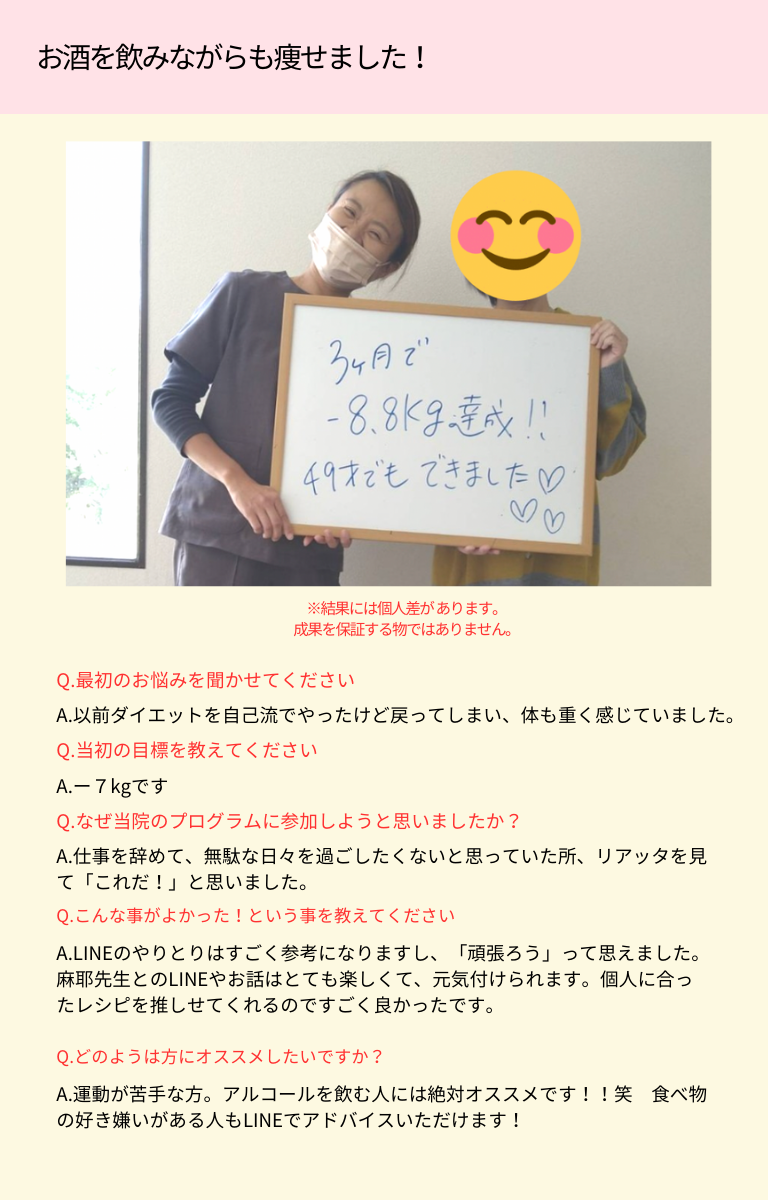 お酒を飲みながらも痩せました！
3ヶ月で
-8.8kg達成!!
49才でもできました♡
♡♡
※結果には個人差があります。
成果を保証する物ではありません。
Q.最初のお悩みを聞かせてください
A.以前ダイエットを自己流でやったけど戻ってしまい、体も重く感じていました。
Q.当初の目標を教えてください
A.ー７kgです
Q.なぜ当院のプログラムに参加しようと思いましたか？
A.仕事を辞めて、無駄な日々を過ごしたくないと思っていた所、リアッタを見
て「これだ！」と思いました。
Q.こんな事がよかった！という事を教えてください
A.LINEのやりとりはすごく参考になりますし、「頑張ろう」って思えました。
麻耶先生とのLINEやお話はとても楽しくて、元気付けられます。個人に合っ
たレシピを推しせてくれるのですごく良かったです。
Q.どのようは方にオススメしたいですか？
A.運動が苦手な方。アルコールを飲む人には絶対オススメです！！笑　食べ物
の好き嫌いがある人もLINEでアドバイスいただけます！